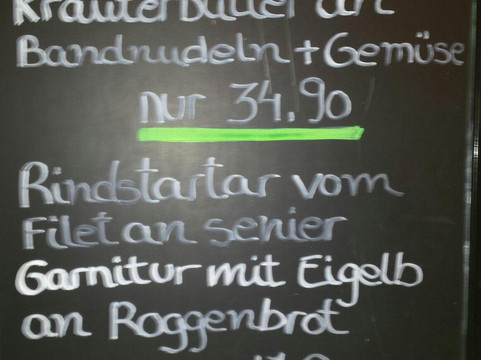 Kräuterbutter an
Bandnudeln + Gemüse
nur 34.90
Rindstartar vom
Filet an senier
Garnitur mit Eigelb
an Roggenbrot